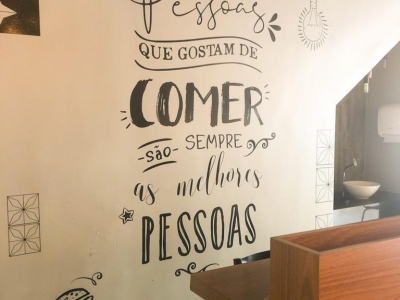 Pessoas
QUE GOSTAM DE
COMER
são SEMPRE
as melhores
PESSOAS